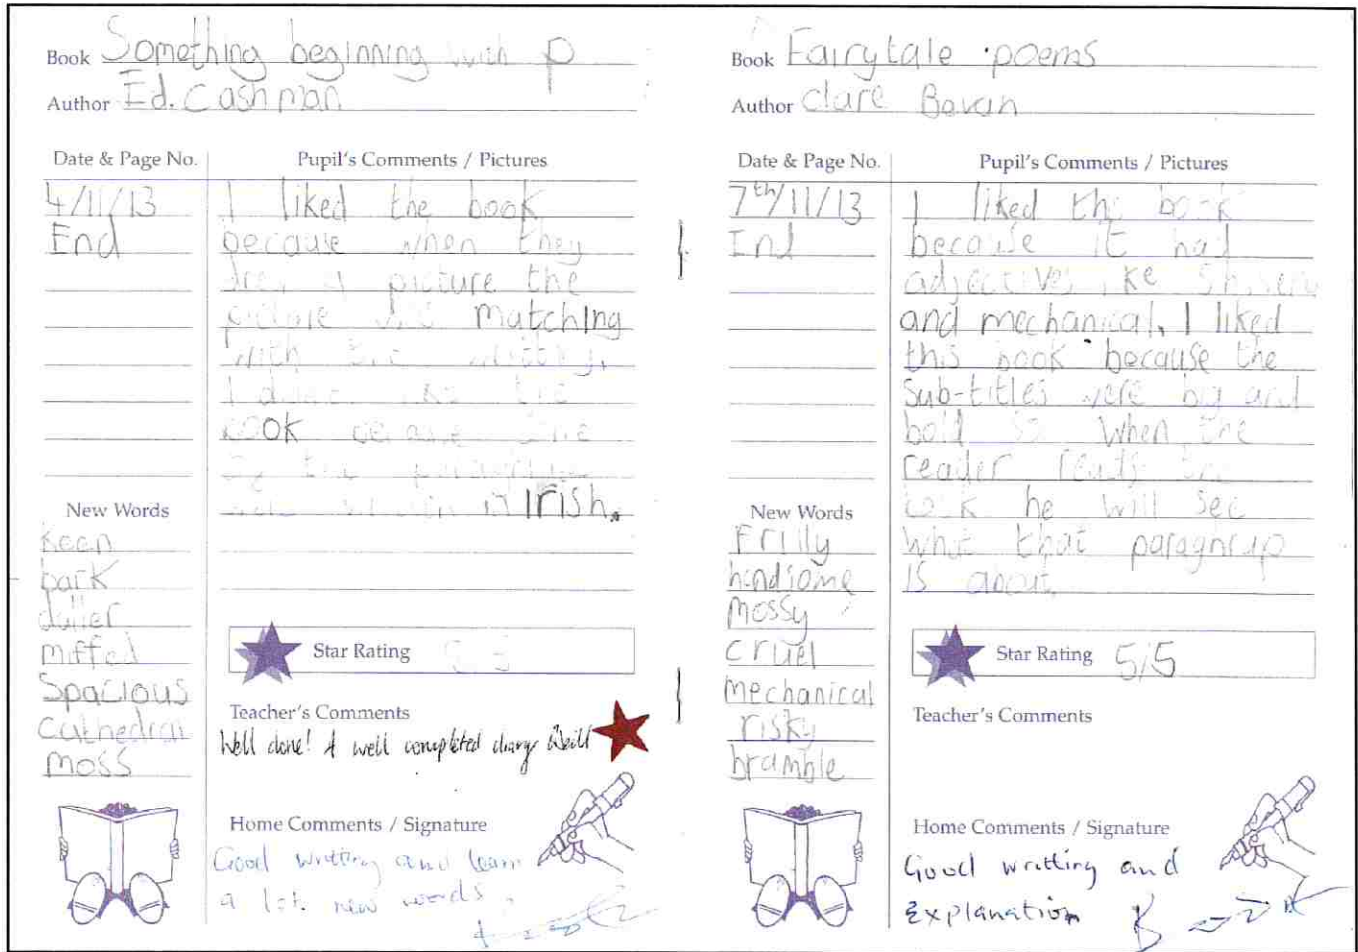 Book Something beginning with P
Author Ed. Cashman
Date & Page No.
Pupil's Comments / Pictures
4/11/13
End
I liked the book
because when they
drew a picture the
picture was matching
with the writing.
I didn't like the
book because some
of the
were written in Irish.
New Words
keen
bark
duller
miffed
Spacious
Cathedral
moss
Star Rating
Teacher's Comments
Well done! A well completed diary
Home Comments / Signature
Good writting and learn
a lot new words
Book Fairytale poems
Author Clare Bevan
Date & Page No.
Pupil's Comments / Pictures
7th/11/13
End
I liked the book
because it had
adjectives like
and mechanical. I liked
this book because the
Sub-titles were big and
bold so when the
reader reads the
book he will see
what that paragrap
is about.
New Words
Frilly
handsome
mossy
cruel
mechanical
risky
bramble
Star Rating 5/5
Teacher's Comments
Home Comments / Signature
Good writting and
Explanation